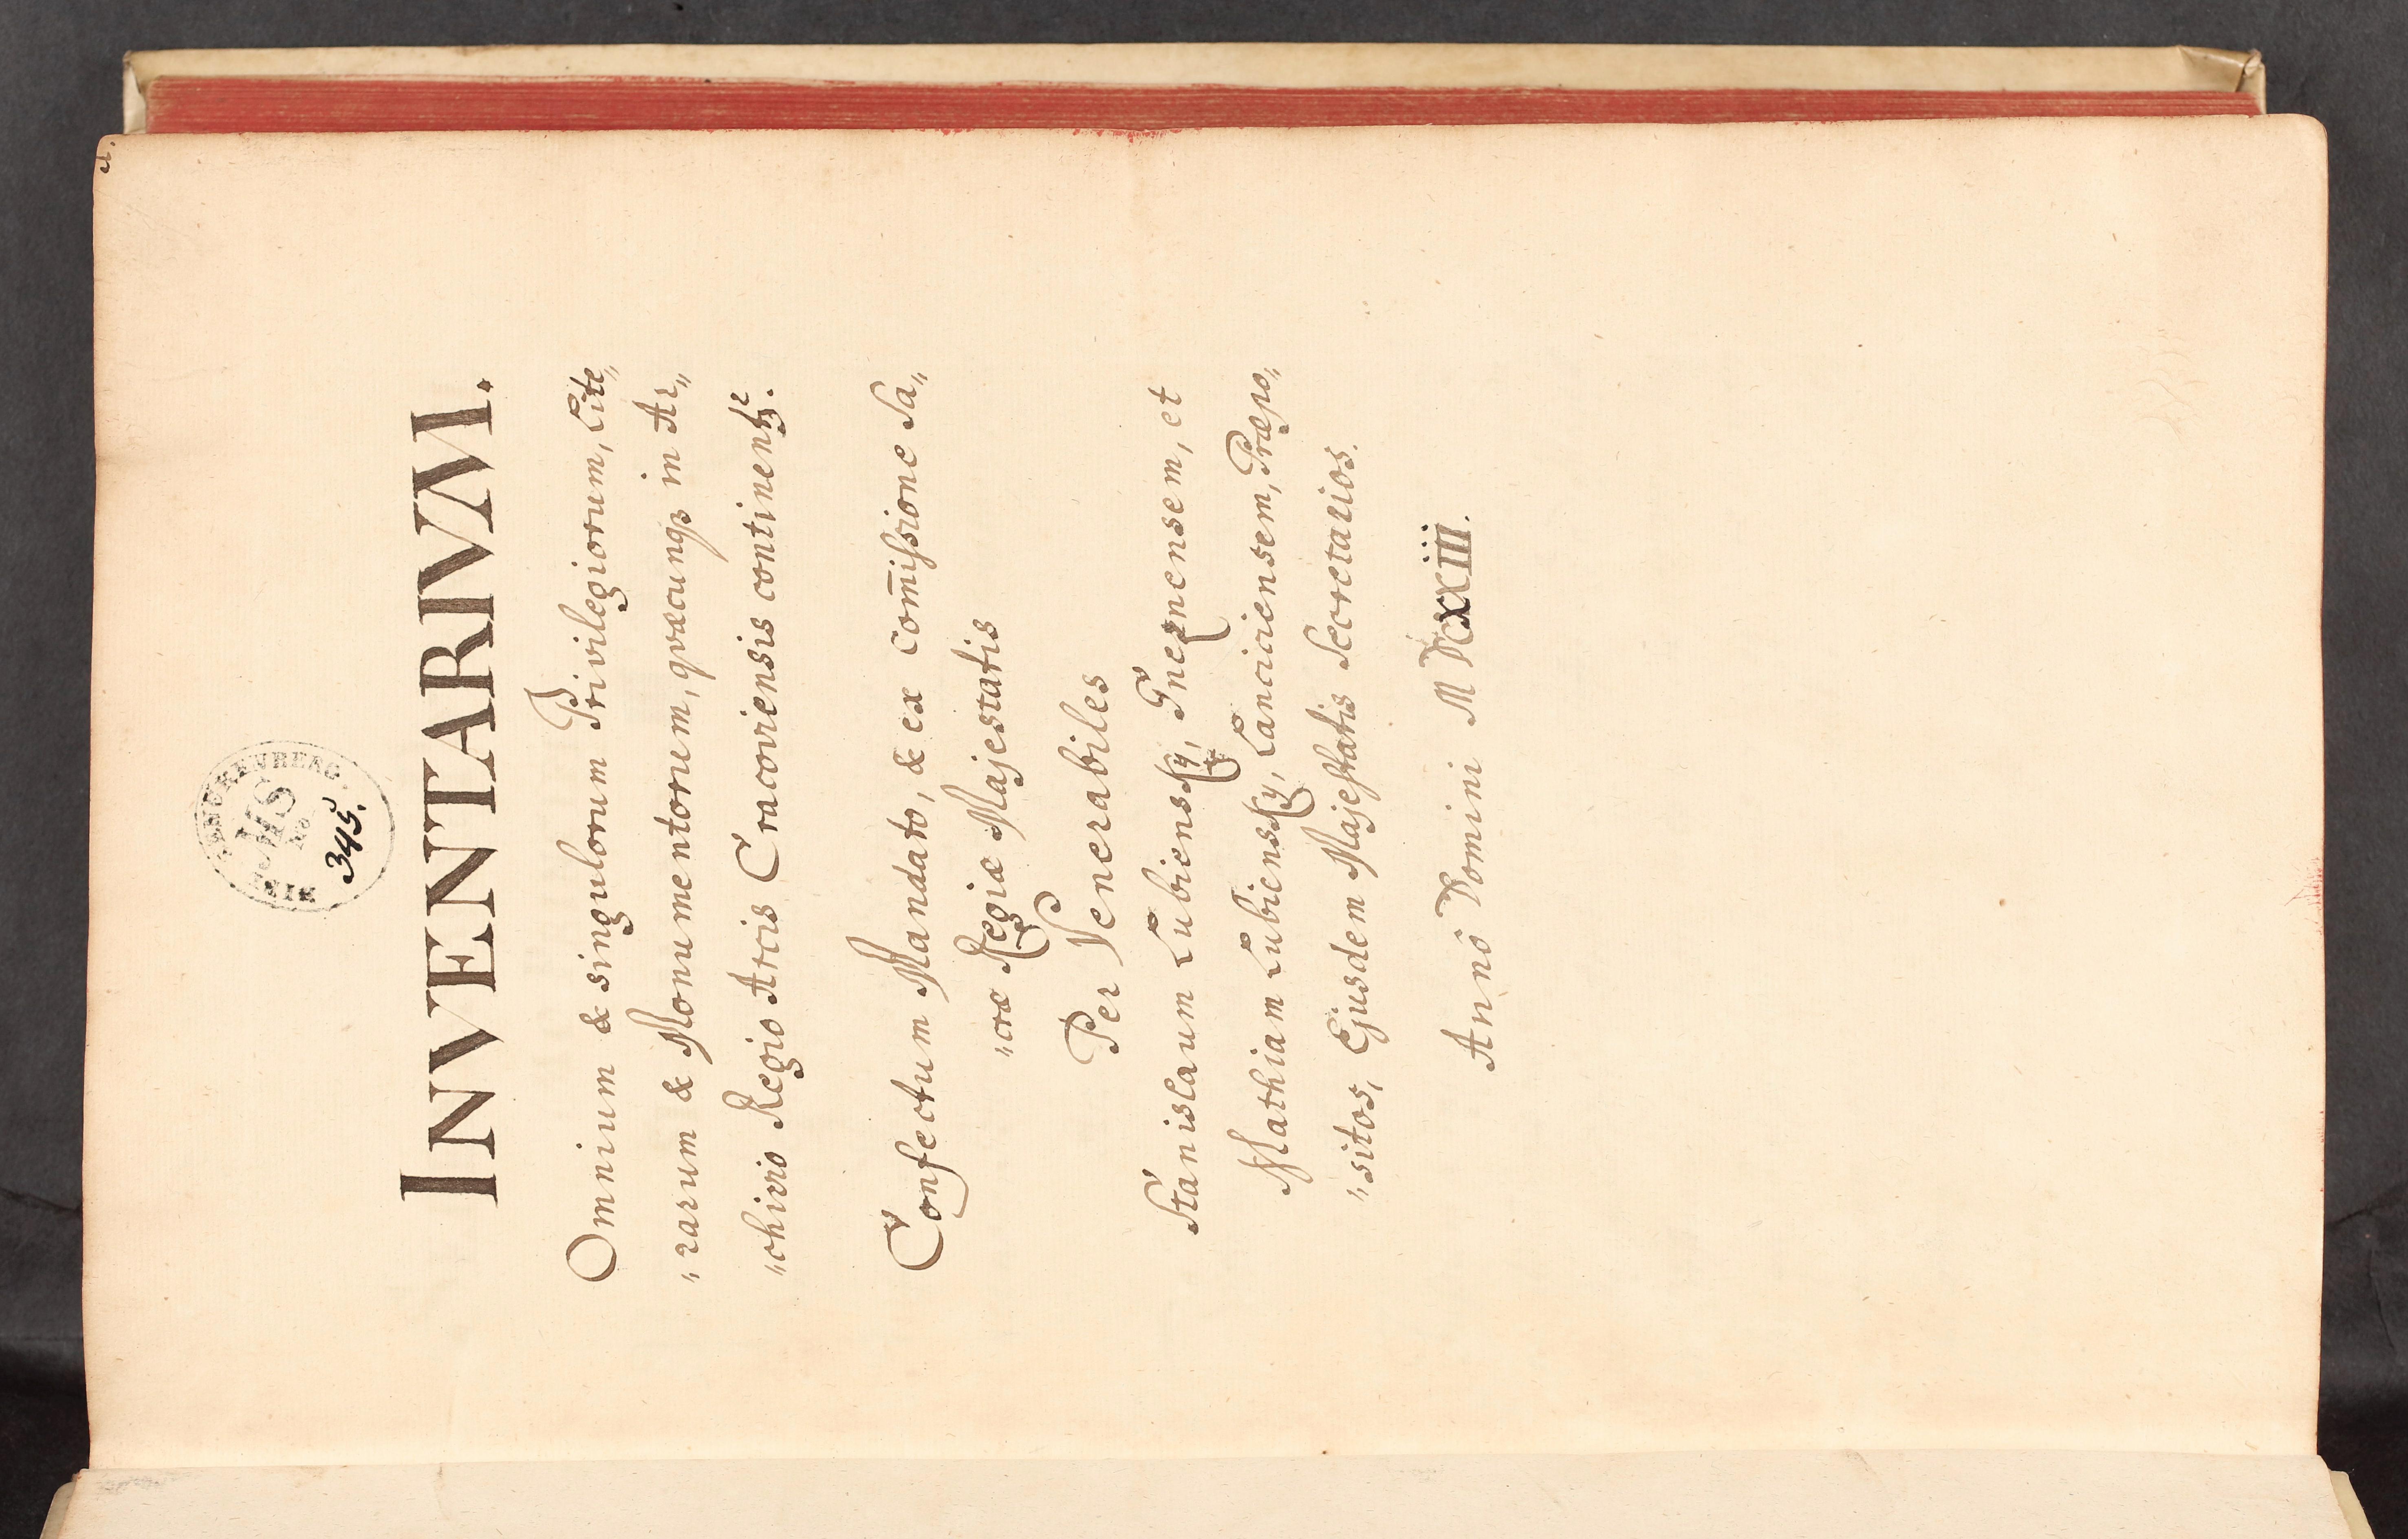 1.
MS
No
345.
INVENTARIVM.
Omnium & singulorum Privilegiorum, Lite„
„rarum & Monumentorum, quæcunqꝫ in Ar„
„chivio Regio Arcis Cracoviensis continentꝛ.
Confectum Mandato, & ex com̄issione Sa„
„cræ Regiæ Majestatis
Per Venerabiles
Stanislaum Lubiensky, Gneznensem, et
Mathiam Lubiensky, Lanciciensem, Præpo„
„sitos, Ejusdem Majestatis Secretarios.
Annô Domini MDCXXIII.